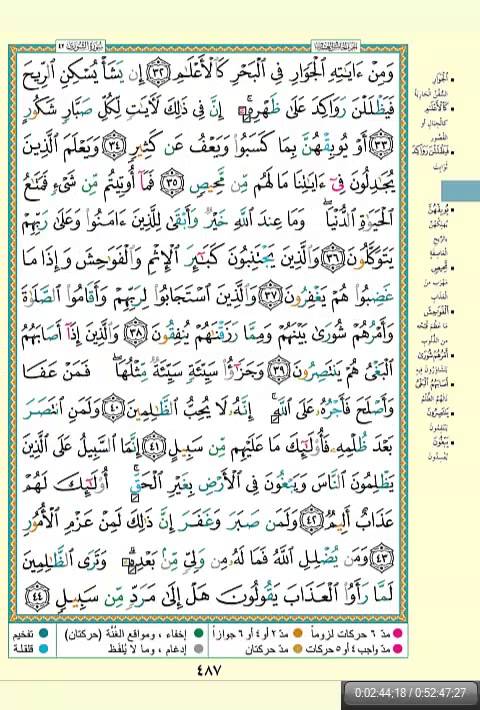 سورة الشورى ٤٢
وَمِنْ ءَايَٰتِهِ الْجَوَارِ فِي الْبَحْرِ كَالْأَعْلَٰمِ ﴿٣٢﴾ إِن يَشَأْ يُسْكِنِ الرِّيحَ
فَيَظْلَلْنَ رَوَاكِدَ عَلَىٰ ظَهْرِهِ إِنَّ فِي ذَٰلِكَ لَآيَٰتٍ لِكُلِّ صَبَّارٍ شَكُورٍ
﴿٣٣﴾ أَوْ يُوبِقْهُنَّ بِمَا كَسَبُوا وَيَعْفُ عَن كَثِيرٍ ﴿٣٤﴾ وَيَعْلَمَ الَّذِينَ
يُجَٰدِلُونَ فِي ءَايَٰتِنَا مَا لَهُم مِّن مَّحِيصٍ ﴿٣٥﴾ فَمَا أُوتِيتُم مِّن شَيْءٍ فَمَتَٰعُ
الْحَيَوٰةِ الدُّنْيَا وَمَا عِندَ اللَّهِ خَيْرٌ وَأَبْقَىٰ لِلَّذِينَ ءَامَنُوا وَعَلَىٰ رَبِّهِمْ
يَتَوَكَّلُونَ ﴿٣٦﴾ وَالَّذِينَ يَجْتَنِبُونَ كَبَٰئِرَ الْإِثْمِ وَالْفَوَٰحِشَ وَإِذَا مَا
غَضِبُوا هُمْ يَغْفِرُونَ ﴿٣٧﴾ وَالَّذِينَ اسْتَجَابُوا لِرَبِّهِمْ وَأَقَامُوا الصَّلَوٰةَ
وَأَمْرُهُمْ شُورَىٰ بَيْنَهُمْ وَمِمَّا رَزَقْنَٰهُمْ يُنفِقُونَ ﴿٣٨﴾ وَالَّذِينَ إِذَا أَصَابَهُمُ
الْبَغْيُ هُمْ يَنتَصِرُونَ ﴿٣٩﴾ وَجَزَٰؤُا سَيِّئَةٍ سَيِّئَةٌ مِّثْلُهَا فَمَنْ عَفَا
وَأَصْلَحَ فَأَجْرُهُ عَلَى اللَّهِ إِنَّهُ لَا يُحِبُّ الظَّٰلِمِينَ ﴿٤٠﴾ وَلَمَنِ انتَصَرَ
بَعْدَ ظُلْمِهِ فَأُولَٰئِكَ مَا عَلَيْهِم مِّن سَبِيلٍ ﴿٤١﴾ إِنَّمَا السَّبِيلُ عَلَى الَّذِينَ
يَظْلِمُونَ النَّاسَ وَيَبْغُونَ فِي الْأَرْضِ بِغَيْرِ الْحَقِّ أُولَٰئِكَ لَهُمْ
عَذَابٌ أَلِيمٌ ﴿٤٢﴾ وَلَمَن صَبَرَ وَغَفَرَ إِنَّ ذَٰلِكَ لَمِنْ عَزْمِ الْأُمُورِ
﴿٤٣﴾ وَمَن يُضْلِلِ اللَّهُ فَمَا لَهُ مِن وَلِيٍّ مِّن بَعْدِهِ وَتَرَى الظَّٰلِمِينَ
لَمَّا رَأَوُا الْعَذَابَ يَقُولُونَ هَلْ إِلَىٰ مَرَدٍّ مِّن سَبِيلٍ ﴿٤٤﴾
الجَوَارِ
السُّفُن الجَارِيَة
كَالأَعْلَامِ
كالجِبَال أو
القُصُور
فَيَظْلَلْنَ رَوَاكِدَ
ثَوَابِت
يُوبِقْهُنَّ
يُهْلِكْهُنَّ
بالرِّيحِ
العَاصِفَةِ
مَحِيصٍ
مَهْرَب مِنَ
العَذَابِ
الفَوَاحِشَ
مَا عَظُمَ قُبْحُه
مِن الذُّنُوبِ
أَمْرُهُمْ شُورَىٰ
يَتَشَاوَرُونَ فِيهِ
أَصَابَهُمُ الْبَغْيُ
نَالَهُمُ الظُّلْمُ
يَنتَصِرُونَ
يَنْتَقِمُونَ
يَبْغُونَ
يُفْسِدُونَ
مدّ ٦ حركات لزوماً مدّ ٢ أو ٤ أو ٦ جوازاً إخفاء ، ومواقع الغُنَّة (حركتان) تفخيم
مدّ واجب ٤ أو ٥ حركات مدّ حركتان إدغام ، وما لا يُلفَظ قلقلة
٤٨٧
0:02:44;18 / 0:52:47;27